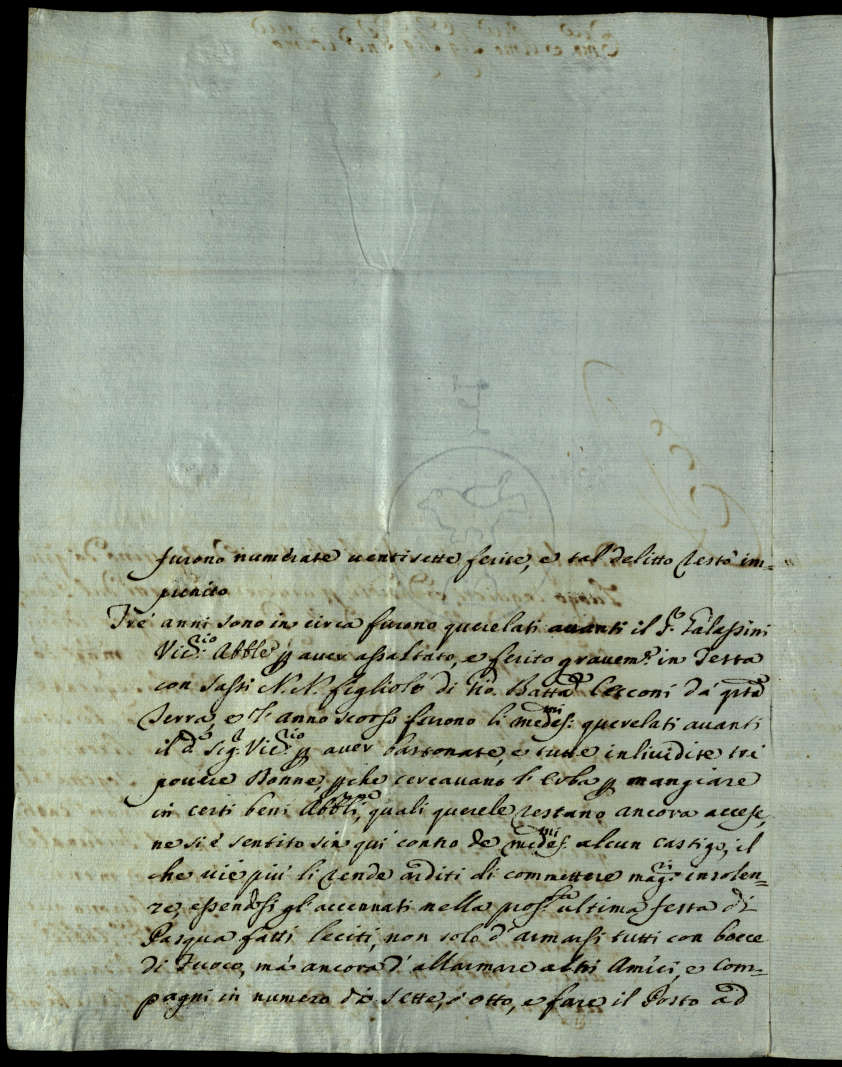 furono numerate uentisette ferite, e tal delitto restò im=
punito
Trè anni sono in circa furono querelati auanti il Sr.
Vic.rio Abble p auer assaltato, e ferito grauem.te in Testa
con Sassi N. N. figlioli di Gio. Batta Cecconi dà qsta
Terra, e l'anno scorso furono li medes.mi querelati auanti
il d.o Sig.r Vic.rio p auer bastonate, e tutte inliuidite tri
pouere Donne, pche cercauano l'erba p mangiare
in certi beni Abb.li, quali querele restano ancora accese,
ne si è sentito sin quì contro de medes.mi alcun castigo, il
che uie più li rende arditi di commettere mag.ri insolen=
ze, essendosi gl'accennati nella pros.ma ultima festa di
Pasqua fatti leciti, non solo d'armarsi tutti con bocce
di Fuoco, mà ancora d'allarmare altri Amici, e Com=
pagni in numero di sette, ò otto, e fare il Posto ad